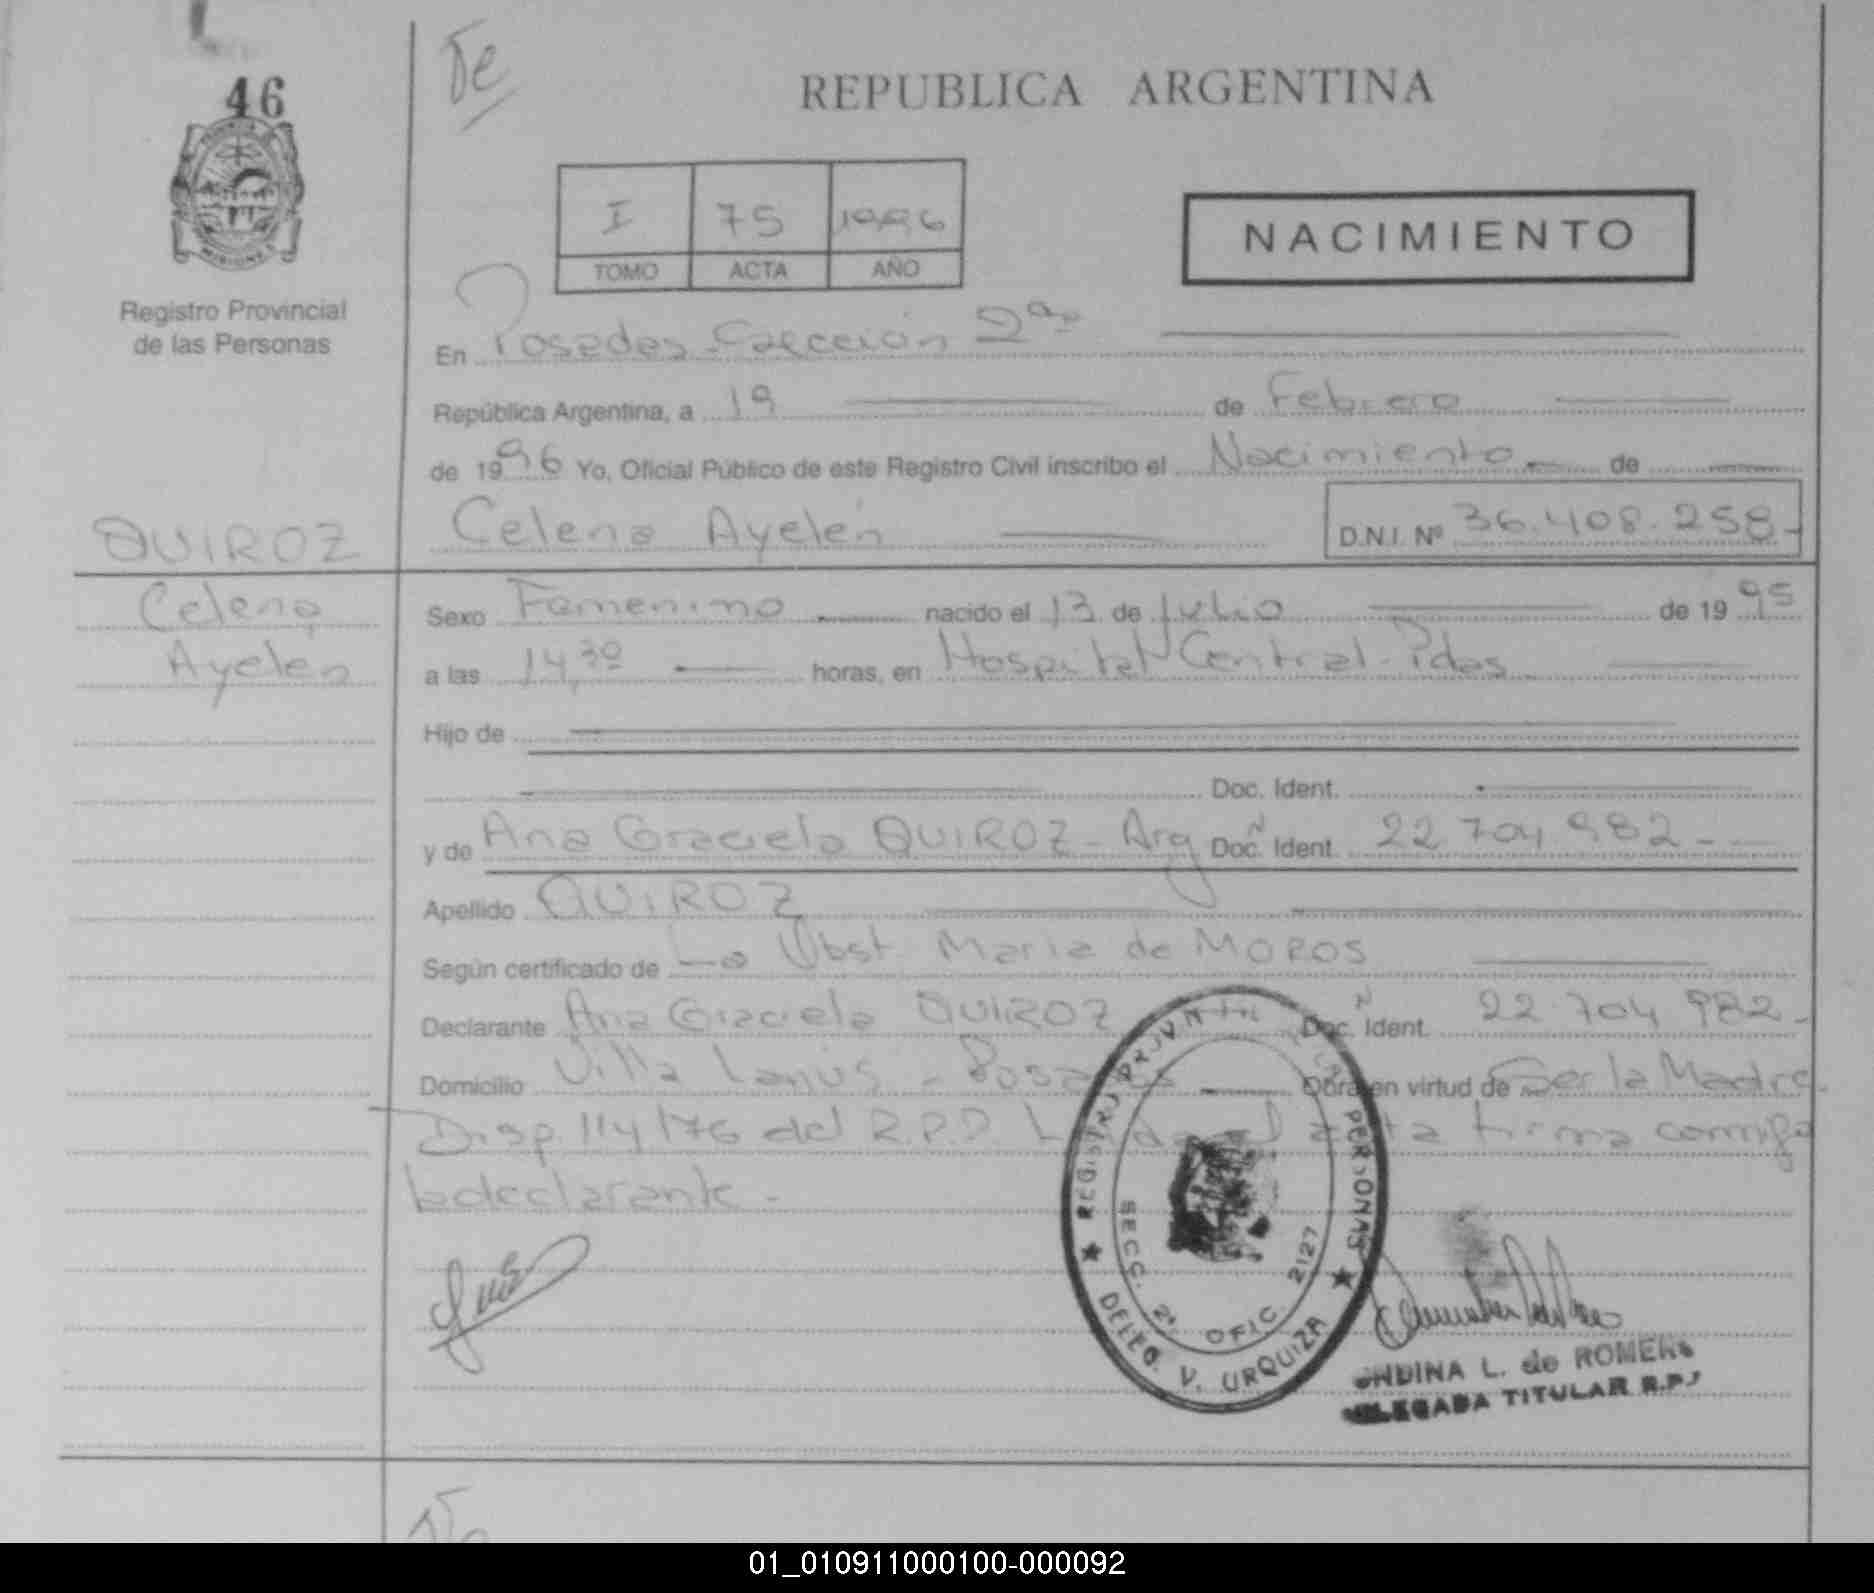 46
Te
REPUBLICA ARGENTINA
I 75 1996
TOMO ACTA AÑO
NACIMIENTO
Registro Provincial
de las Personas
En Posadas Sección 2ª
República Argentina, a 19 de Febrero
de 1996 Yo, Oficial Público de este Registro Civil inscribo el Nacimiento de
QUIROZ
Celena Ayelén
D.N.I. Nº 36.408.258-
Celena
Ayelen
Sexo Femenino nacido el 13 de Julio de 1995
a las 14,30 horas, en Hospital Central Pdas
Hijo de
Doc. Ident.
y de Ana Graciela QUIROZ - Arg Doc. N Ident. 22 704 982-
Apellido QUIROZ
Según certificado de La Obst Maria de MOROS
Declarante Ana Graciela QUIROZ Doc. N Ident. 22.704 982-
Domicilio Villa Lanús - Posadas Obra en virtud de Ser la Madre
Disp. 114/76 del R.P.P. Leída el acta firma conmigo
la declarante -
REGISTRO PROVINCIAL PERSONAS
DELEG. V. URQUIZA
SECC. 2ª OFIC. 2127
ONDINA L. de ROMERO
DELEGADA TITULAR R.P.
01_010911000100-000092